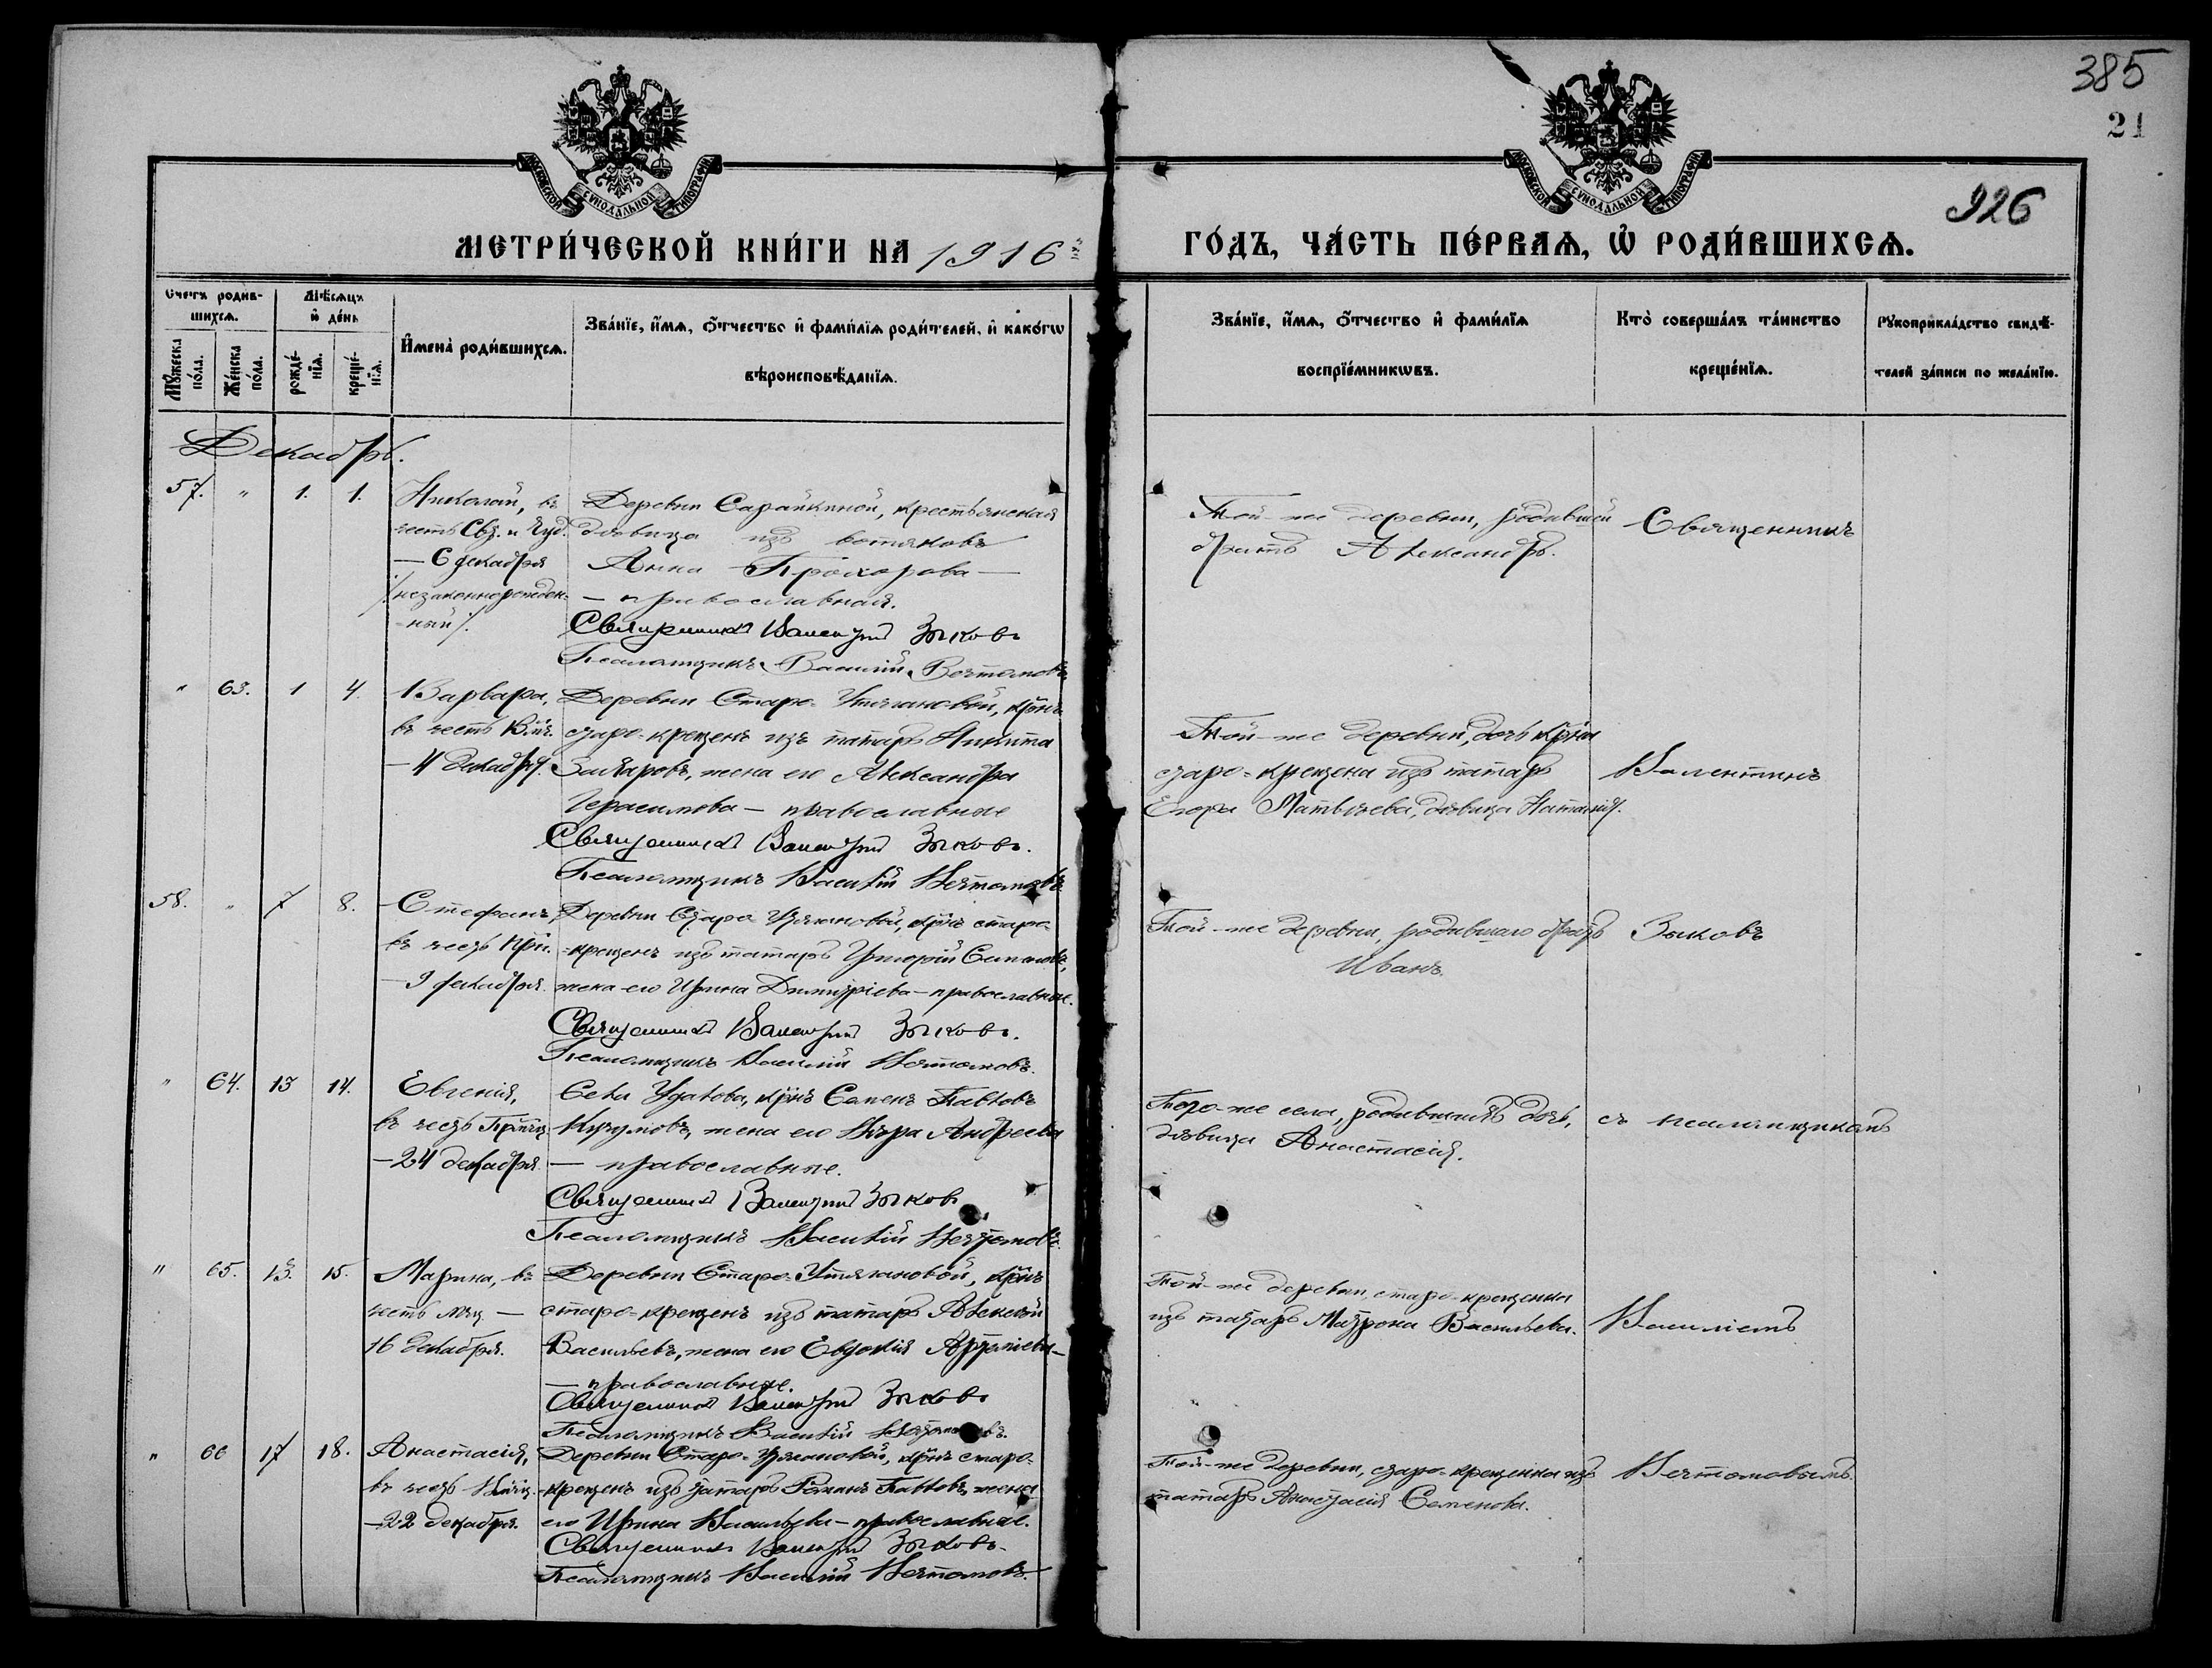 385
21
926
МОСКОВСКОЙ СѴНОДАЛЬНОЙ ТИПОГРАФІИ
МОСКОВСКОЙ СѴНОДАЛЬНОЙ ТИПОГРАФІИ
МЕТРИ́ЧЕСКОЙ КНИ́ГИ НА 1916 й
ГО́ДЪ, ЧА́СТЬ ПЕ́РВАѦ, Ѿ РОДИ́ВШИХСѦ.
Счетъ родив-
шихсѧ.
Мѣсѧцъ
и де́нь
Мꙋжеска
по́ла.
Же́нска
по́ла.
рожде́-
нїѧ.
креще́-
нїѧ.
И҆мена̀ роди́вшихсѧ.
Зва́нїе, и҆́мѧ, ѻ҆́тчество и҆ фами́лїѧ роди́телей, и҆ како́гѡ
вѣроисповѣ́данїѧ.
Зва́нїе, и҆́мѧ, ѻ҆́тчество и҆ фами́лїѧ
воспрїе́мникѡвъ.
Кто̀ соверша́лъ та́инство
креще́нїѧ.
Рꙋкоприкла́дство свидѣ́-
телей за́писи по жела́нїю.
Декабрь.
57. " 1. 1.
Николай, въ
честь Свя. и Чуд.
— 6 декабря
/незаконнорожден-
-ный/.
Деревни Сарайкиной, крестьянская
дѣвица изъ вотяковъ
Анна Прохорова —
— православная.
Священникъ Валентинъ Зыковъ
Псаломщикъ Василій Вохтомовъ
Той-же деревни, родившей
братъ Александръ.
Священникъ
" 63. 1 4.
Варвара,
въ честь Вмч.
— 4 декабря.
Деревни Старо-Утягановой, крнъ
старо-крещенъ изъ татаръ Никита
Захаровъ, жена его Александра
Герасимова — православные
Священникъ Валентинъ Зыковъ.
Псаломщикъ Василій
Той-же деревни, дочь крна
старо-крещена изъ татаръ
Егора Матвѣева, дѣвица Наталія.
Валентинъ
58. " 7 8.
Стефанъ,
въ честь Прп.
— 9 декабря.
Деревни Старо Утягановой, крнъ старо-
-крещенъ изъ татаръ Григорій Семеновъ,
жена его Ирина Димитріева — православные.
Священникъ Валентинъ Зыковъ.
Псаломщикъ Василій
Той-же деревни, родившаго братъ
Иванъ.
Зыковъ
" 64. 13 14.
Евгенія,
въ честь Прмчц.
— 24 декабря.
Села крнъ Семенъ Павловъ
жена его Вѣра Андреева
— православные.
Священникъ Валентинъ Зыковъ
Псаломщикъ Василій
Того-же села, родившихъ дочь,
дѣвица Анастасія.
съ псаломщикомъ
" 65. 13. 15.
Марина, въ
честь мчц —
16 декабря.
Деревни Старо-Утягановой, крнъ
старо-крещенъ изъ татаръ Алексѣй
Васильевъ, жена его Евдокія Артеміева —
— православные.
Священникъ Валентинъ Зыковъ
Псаломщикъ Василій
Той-же деревни, старо-крещенка
изъ татаръ Матрона Васильева.
Василіемъ
" 66 17 18.
Анастасія,
въ честь Вмчц.
— 22 декабря.
Деревни Старо-Утягановой, крнъ старо-
-крещенъ изъ татаръ Романъ Павловъ, жена
его Ирина Васильева — православные.
Священникъ Валентинъ Зыковъ.
Псаломщикъ Василій
Той-же деревни, старо-крещенка изъ
татаръ Анастасія Семенова.